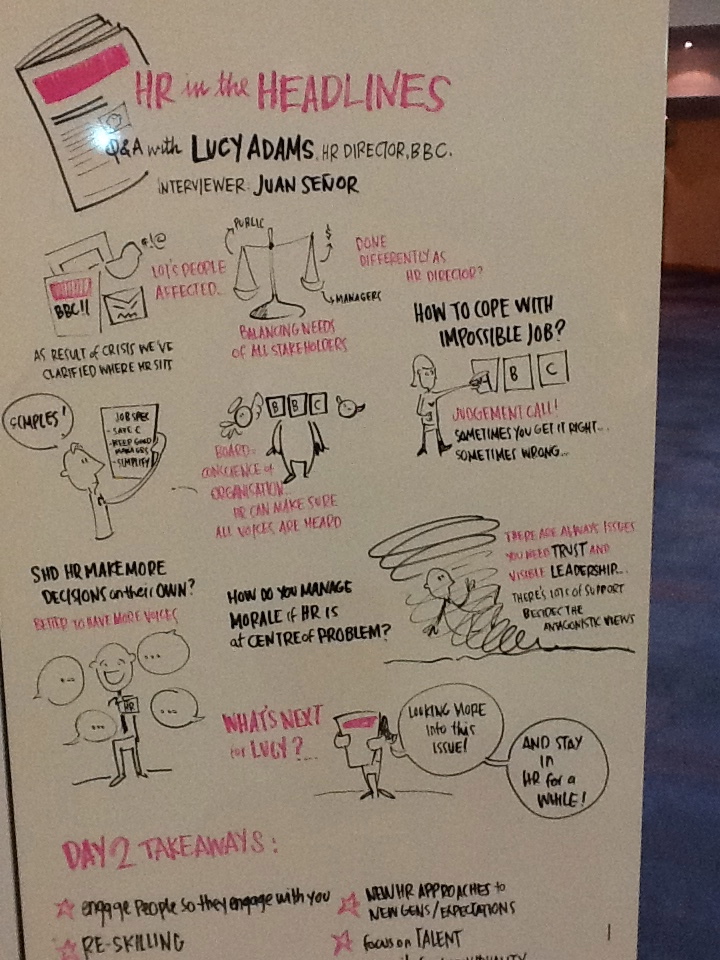 HR in the HEADLINES
Q&A with LUCY ADAMS, HR DIRECTOR, BBC.
INTERVIEWER: JUAN SEÑOR
*!@
BBC!!
LOT'S PEOPLE
AFFECTED...
AS RESULT of CRISIS WE'VE
CLARIFIED WHERE HR SITS
PUBLIC
$
MANAGERS
BALANCING NEEDS
OF ALL STAKEHOLDERS
DONE
DIFFERENTLY AS
HR DIRECTOR?
HOW TO COPE WITH
IMPOSSIBLE JOB?
B C
JUDGEMENT CALL!
SOMETIMES YOU GET IT RIGHT...
SOMETIMES WRONG...
SIMPLES!
JOB SPEC
- SAVE £
- KEEP GOOD
MANAGERS
- SIMPLIFY
B B C
BOARD=
CONSCIENCE of
ORGANISATION...
HR CAN MAKE SURE
ALL VOICES ARE HEARD
SHD HR MAKE MORE
DECISIONS on their OWN?
BETTER TO HAVE MORE VOICES
...
...
...
...
HR
HOW DO YOU MANAGE
MORALE if HR IS
at CENTRE of PROBLEM?
THERE ARE ALWAYS ISSUES
YOU NEED TRUST AND
VISIBLE LEADERSHIP...
THERE'S LOTS OF SUPPORT
BESIDES THE
ANTAGONISTIC VIEWS
WHAT'S NEXT
for LUCY?...
LOOKING MORE
into this
ISSUE!
AND STAY
in
HR for a
WHILE!
DAY 2 TAKEAWAYS:
engage People so they engage with you
RE-SKILLING
NEW HR APPROACHES to
NEW GENS/EXPECTATIONS
focus on TALENT